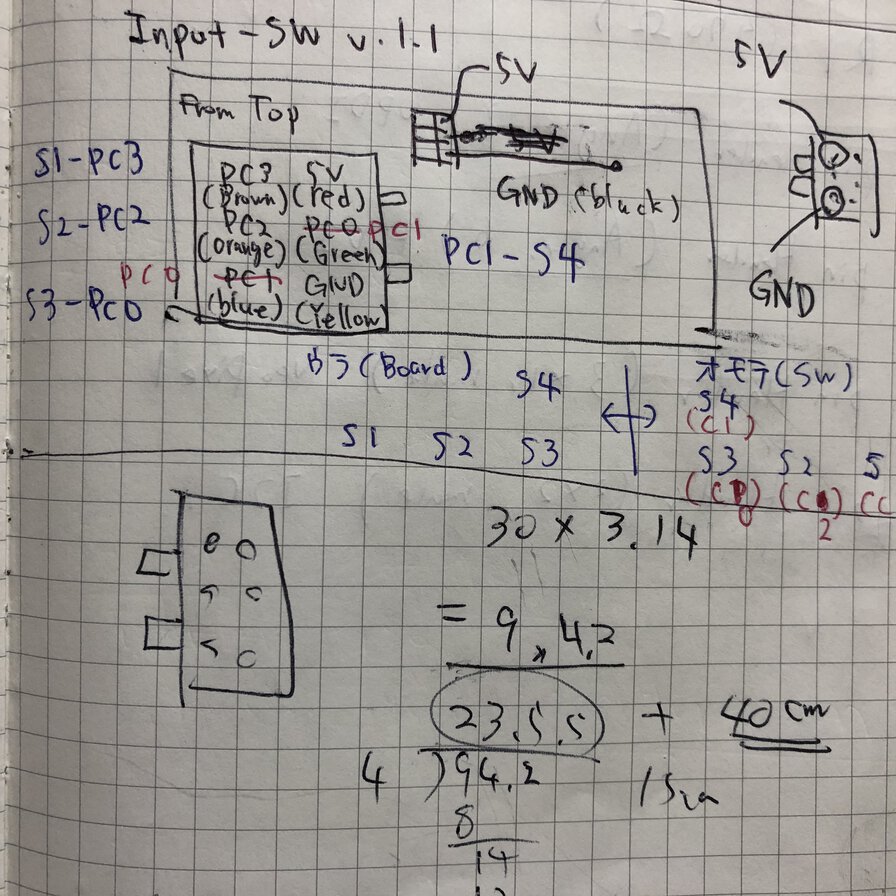 Input-SW v.1.1
5V
5V
From Top
S1-PC3
PC3 5V
(Brown) (red)
GND (black)
S2-PC2
PC2 PC0 PC1
(orange) (Green)
PC1-S4
PC0 PC1 GND
(blue) (Yellow)
S3-PC0
GND
ウラ(Board)
オモテ(SW)
S4
S4
(C1)
S1 S2 S3
S3 S2 S
(C0) (C2) (C
30 x 3.14
= 94.2
23.5.5 + 40cm
4 ) 94.2
8
14